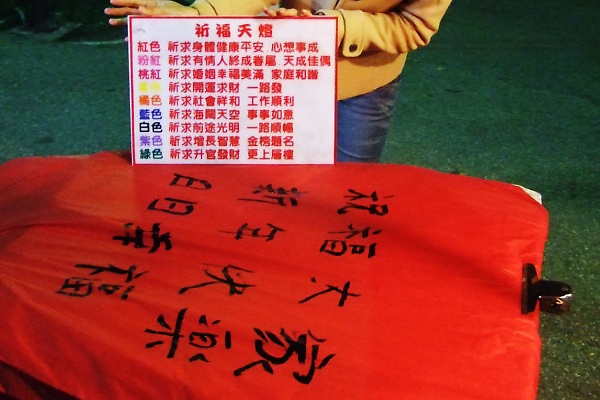 祈福天燈
紅色 祈求身體健康平安 心想事成
粉紅 祈求有情人終成眷屬 天成佳偶
桃紅 祈求婚姻幸福美滿 家庭和諧
黃色 祈求開運求財 一路發
橘色 祈求社會祥和 工作順利
藍色 祈求海闊天空 事事如意
白色 祈求前途光明 一路順暢
紫色 祈求增長智慧 金榜題名
綠色 祈求升官發財 更上層樓
祝福大家
新年快樂
幸福